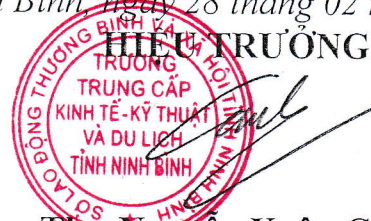 Bình, ngày 28 tháng 02
HIỆU TRƯỞNG
SỞ LAO ĐỘNG THƯƠNG BINH VÀ XÃ HỘI TỈNH NINH BÌNH
TRƯỜNG
TRUNG CẤP
KINH TẾ-KỸ THUẬT
VÀ DU LỊCH
TỈNH NINH BÌNH